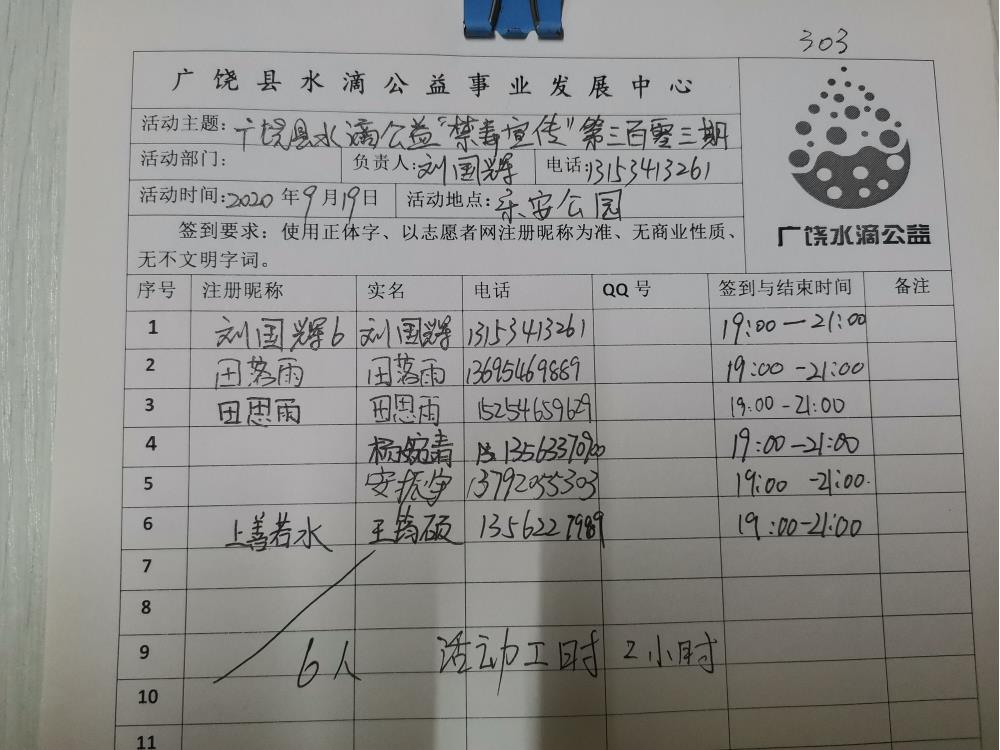 303
广饶县水滴公益事业发展中心
活动主题：广饶县水滴公益“禁毒宣传”第三百零三期
活动部门： 负责人：刘国辉 电话：13153413261
活动时间：2020年9月19日 活动地点：乐安公园
广饶水滴公益
签到要求：使用正体字、以志愿者网注册昵称为准、无商业性质、
无不文明字词。
序号 注册昵称 实名 电话 QQ号 签到与结束时间 备注
1 刘国辉6 刘国辉 13153413261 19:00-21:00
2 田落雨 田落雨 13695469889 19:00-21:00
3 田思雨 田思雨 15254659629 19:00-21:00
4 杨婉青 19:00-21:00
5 13792055303 19:00-21:00
6 上善若水 王 硕 19:00-21:00
7
8
9 6人 活动工时 2小时
10
11